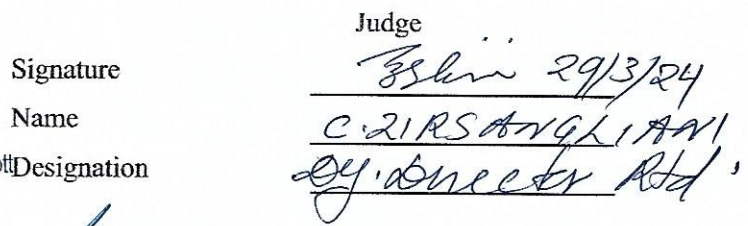 Judge
Signature 29/3/24
Name C. ZIRSANGLIANI
Designation Dy. Director Rtd